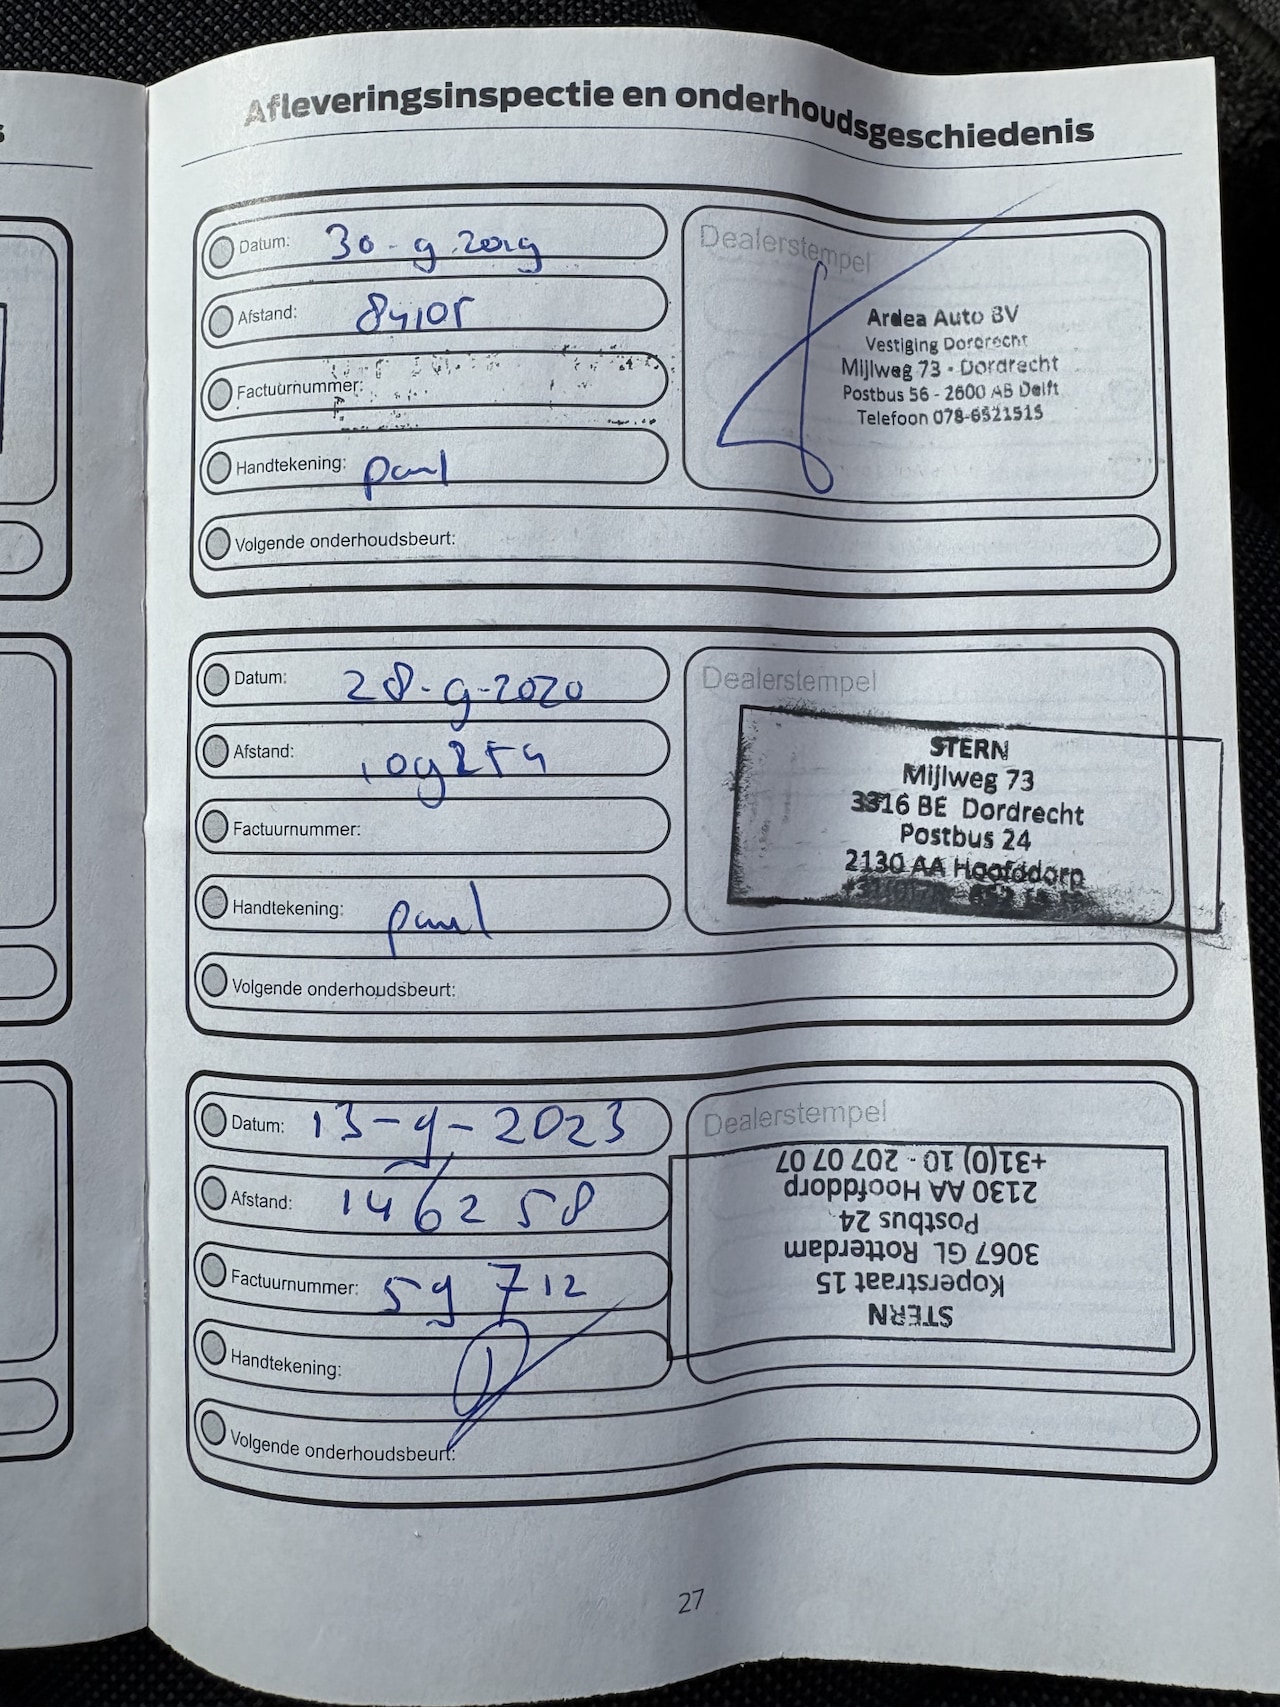 Afleveringsinspectie en onderhoudsgeschiedenis
Datum: 30-9-2019
Afstand: 84105
Factuurnummer:
Handtekening: paul
Volgende onderhoudsbeurt:
Dealerstempel
Ardea Auto BV
Vestiging Dordrecht
Mijlweg 73 - Dordrecht
Postbus 56 - 2600 AB Delft
Telefoon 078-6521515
Datum: 28-9-2020
Afstand: 109254
Factuurnummer:
Handtekening: paul
Volgende onderhoudsbeurt:
Dealerstempel
STERN
Mijlweg 73
3316 BE Dordrecht
Postbus 24
2130 AA Hoofddorp
Datum: 13-9-2023
Afstand: 146258
Factuurnummer: 59712
Handtekening:
Volgende onderhoudsbeurt:
Dealerstempel
STERN
Koperstraat 15
3067 GL Rotterdam
Postbus 24
2130 AA Hoofddorp
+31(0) 10 - 207 07 07
27